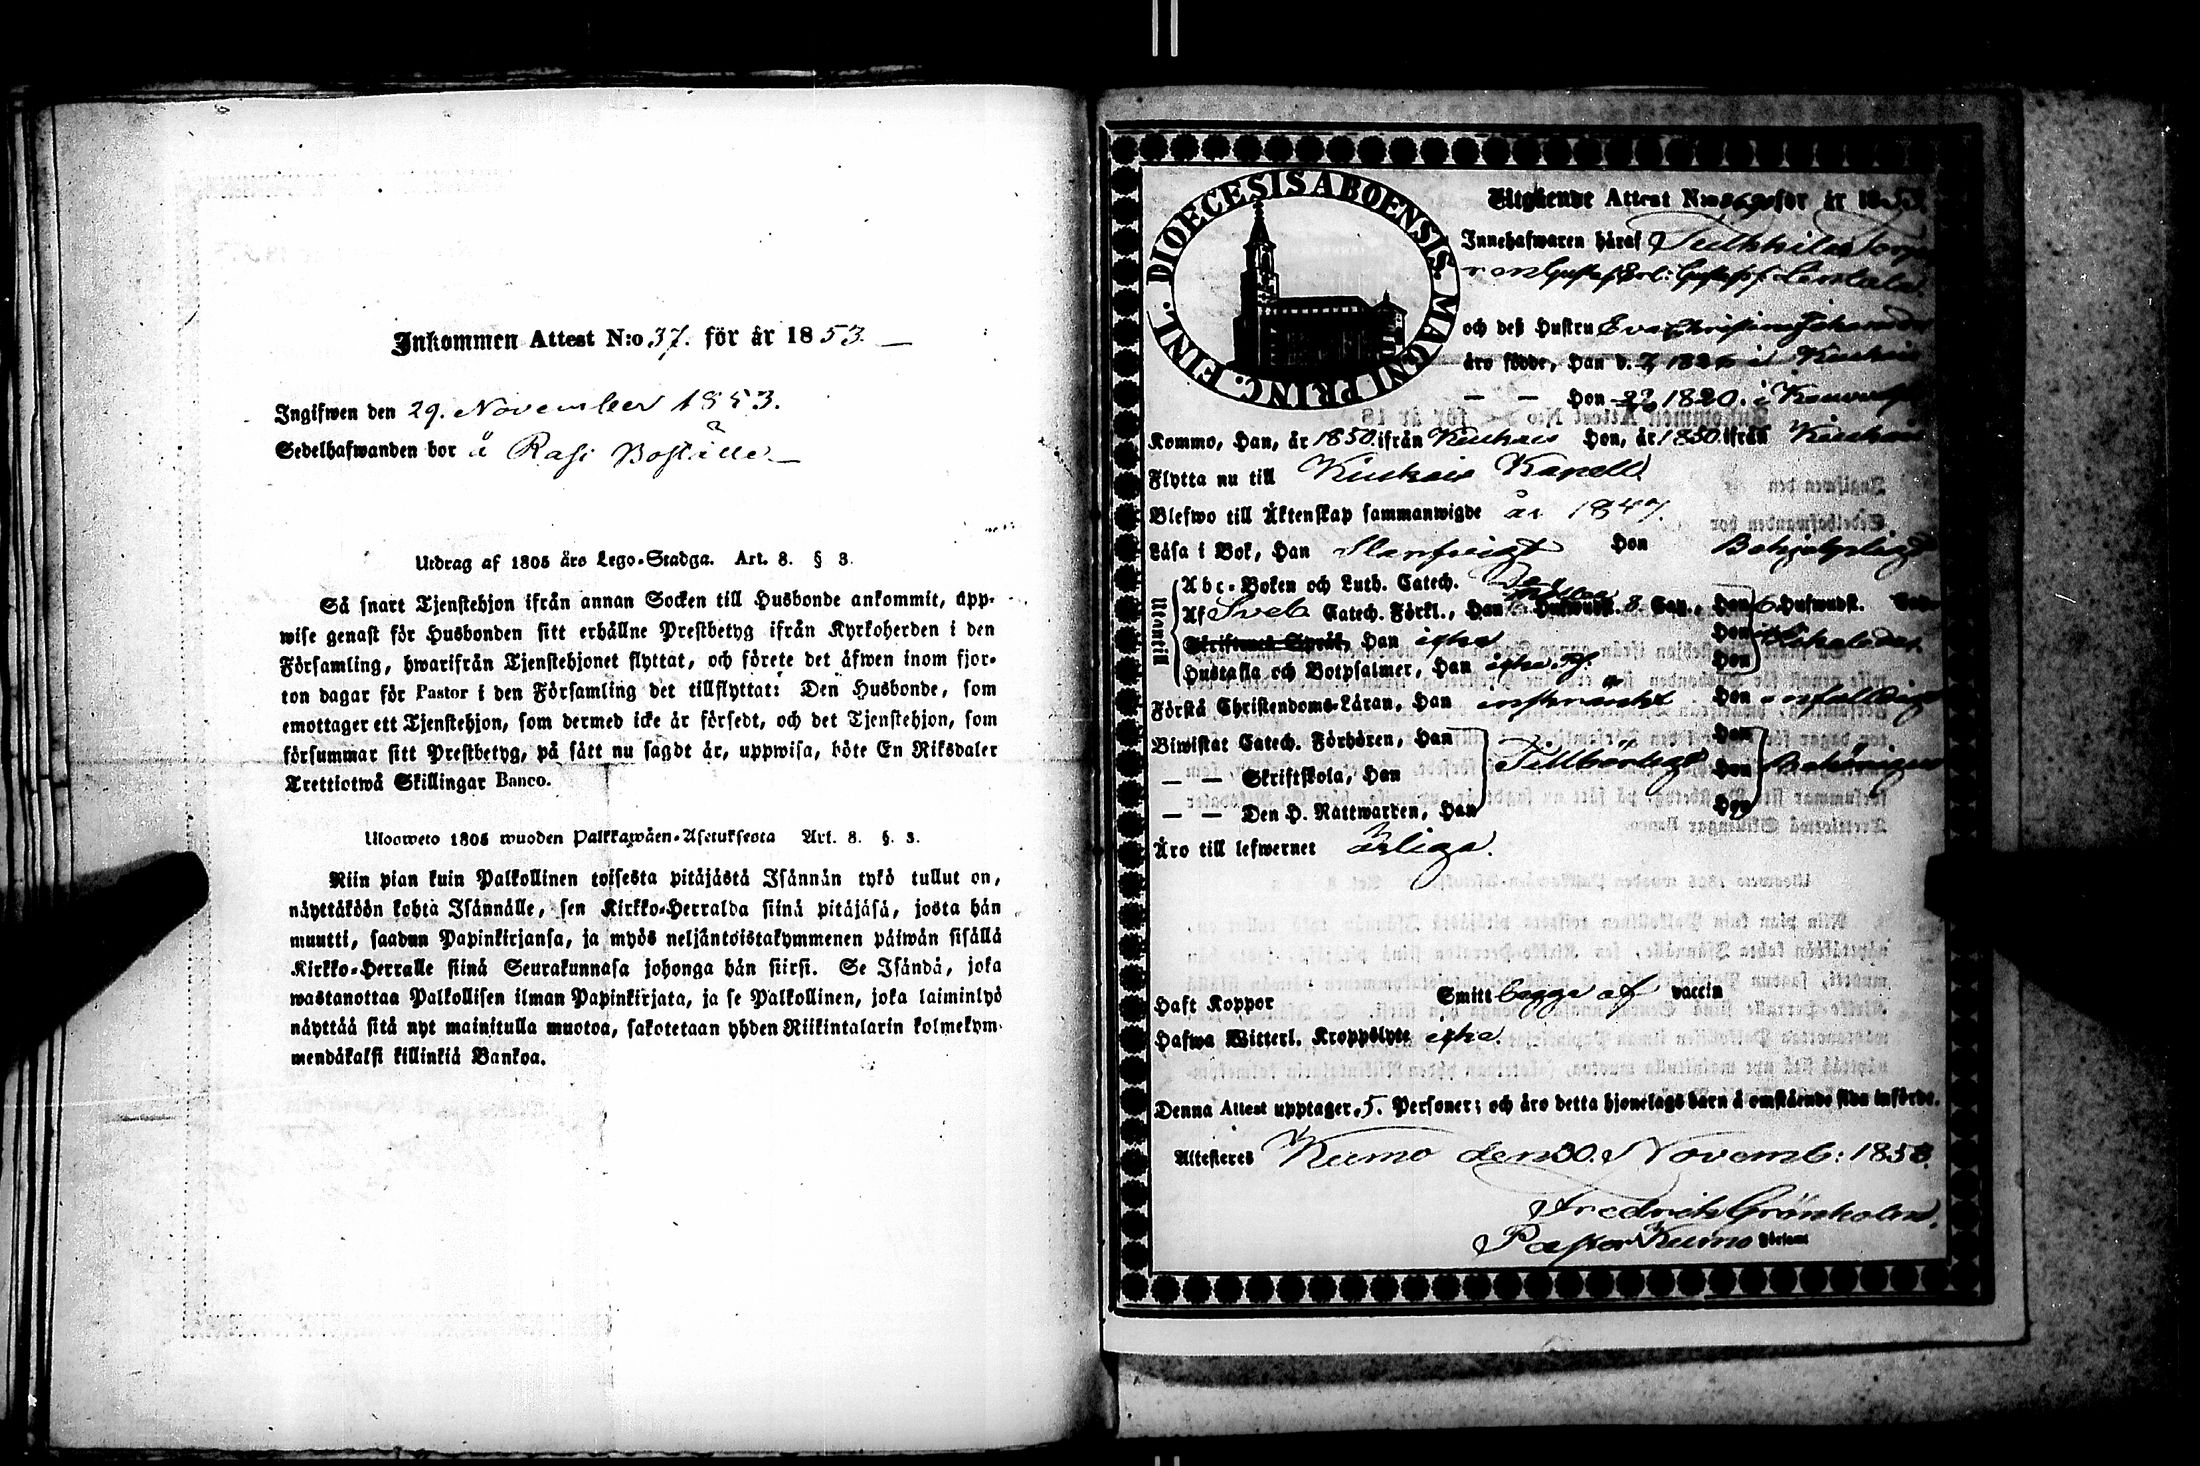 Inkommen Attest N:o 37. för år 1853.
Ingifwen den 29. November 1853.
Sedelhafwanden bor å Rasi Boställe
Utdrag af 1805 års Lego-Stadga. Art. 8. § 3.
Så snart Tjenstehjon ifrån annan Socken till Husbonde ankommit, upp-
wise genast för Husbonden sitt erhållne Prestbetyg ifrån Kyrkoherden i den
Församling, hwarifrån Tjenstehjonet flyttat, och förete det äfwen inom fjor-
ton dagar för Pastor i den Församling det tillflyttat: Den Husbonde, som
emottager ett Tjenstehjon, som dermed icke är försedt, och det Tjenstehjon, som
försummar sitt Prestbetyg, på sätt nu sagdt är, uppwisa, böte En Riksdaler
Trettiotwå Skillingar Banco.
Ulosweto 1805 wuoden Palkkawäen-Asetuksesta Art. 8. §. 3.
Niin pian kuin Palkollinen toisesta pitäjästä Isännän tykö tullut on,
näyttäköön kohta Isännälle, sen Kirkko-Herralda siinä pitäjäsä, josta hän
muutti, saadun Papinkirjansa, ja myös neljäntoistakymmenen päiwän sisällä
Kirkko-Herralle siinä Seurakunnasa johonga hän siirsi. Se Isändä, joka
wastanottaa Palkollisen ilman Papinkirjata, ja se Palkollinen, joka laiminlyö
näyttää sitä nyt mainitulla muotoa, sakotetaan yhden Riikintalarin kolmekym-
mendäkaksi killinkiä Bankoa.
DIOECESIS ABOENSIS MAGNI PRINC. FINL.
Utgående Attest N:o för år 1853.
Innehafwaren häraf
Gustaf
och deß Hustru Eva Christina
äro födde, Han d. i
Hon 1820. i
Kommo, Han, år 1850 ifrån Kiukais Hon, år 1850 ifrån Kiukais
Flytta nu till Kiukais Kapell
Blefwo till Äktenskap sammanwigde år 1847.
Läsa i Bok, Han Hon
Abc-Boken och Luth. Catech.
Af Sveb. Catech. Förkl., Han Hufwudst. 8. Cap., Hon 6. Hufwudst.
Utantill
Skriftenes Språk, Han Hon
Hustafla och Botpsalmer, Han Hon
Förstå Christendoms-Läran, Han inskränkt Hon enfaldigt
Biwistat Catech. Förhören, Han Hon
— — Skriftskola, Han Tillbörligt Hon
— — Den H. Nattwarden, Han Hon
Äro till lefwernet ärliga.
Haft Koppor Smitt begge af vaccin
Hafwa Witterl. Kroppslyte
Denna Attest upptager 5. Personer; och äro detta hjonelags barn å omstående sida införde.
Attesteres Kumo den 30. Novemb: 1853.
Fredrich Grönholm.
Pastor i Kumo Församl